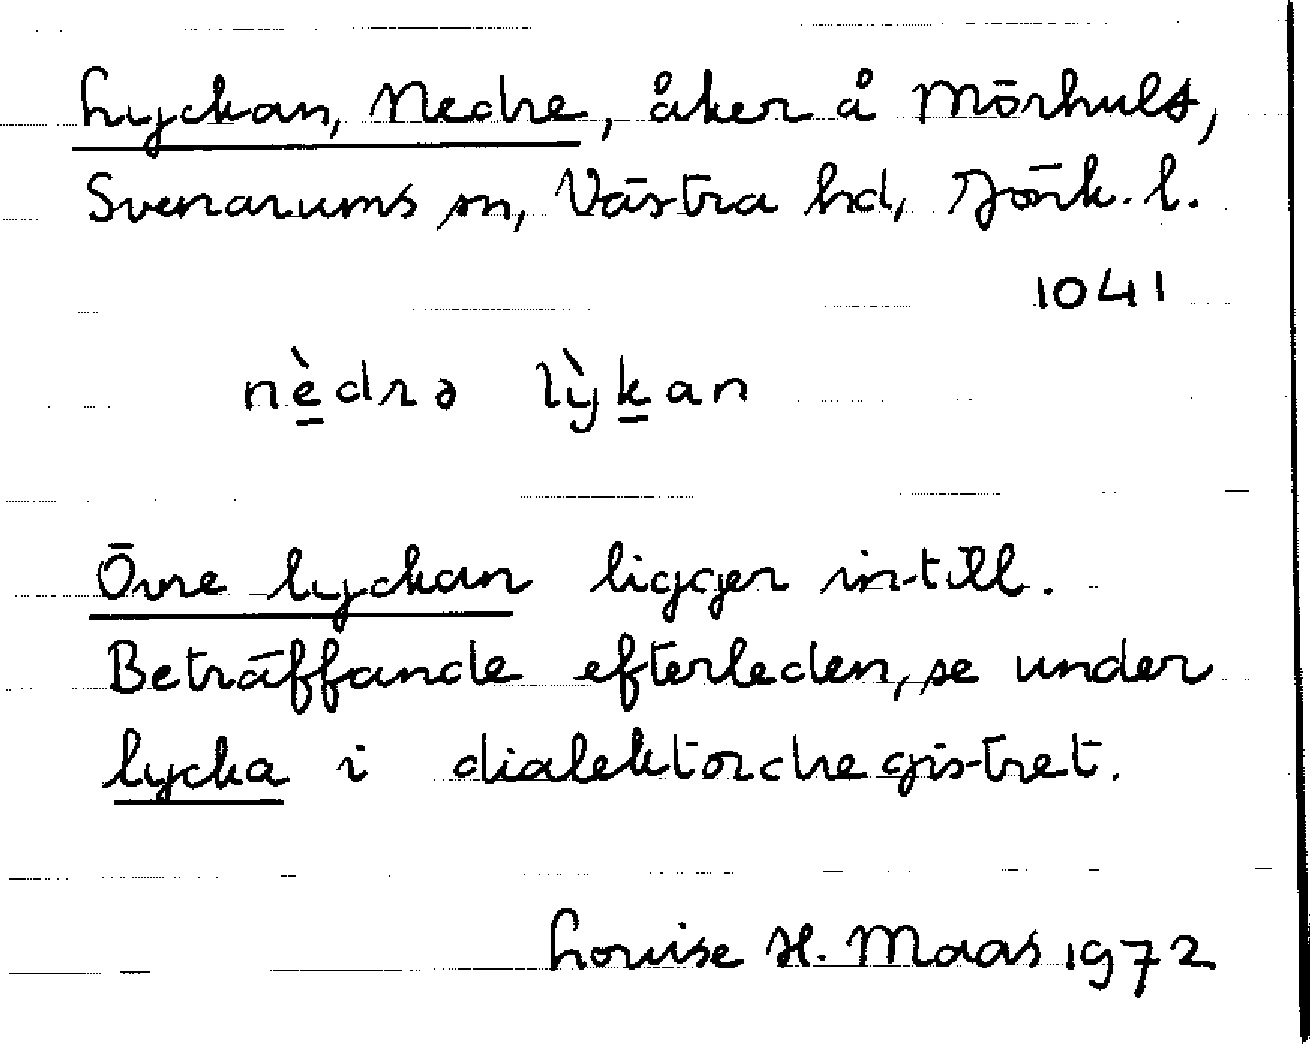 Lyckan, Nedre, åker å Mörhult,
Svenarums sn, Västra hd, Jönk. l.
1041
nè̱drə lỳḵan
Övre lyckan ligger intill.
Beträffande efterleden, se under
lycka i dialektordregistret.
Louise H. Maas 1972